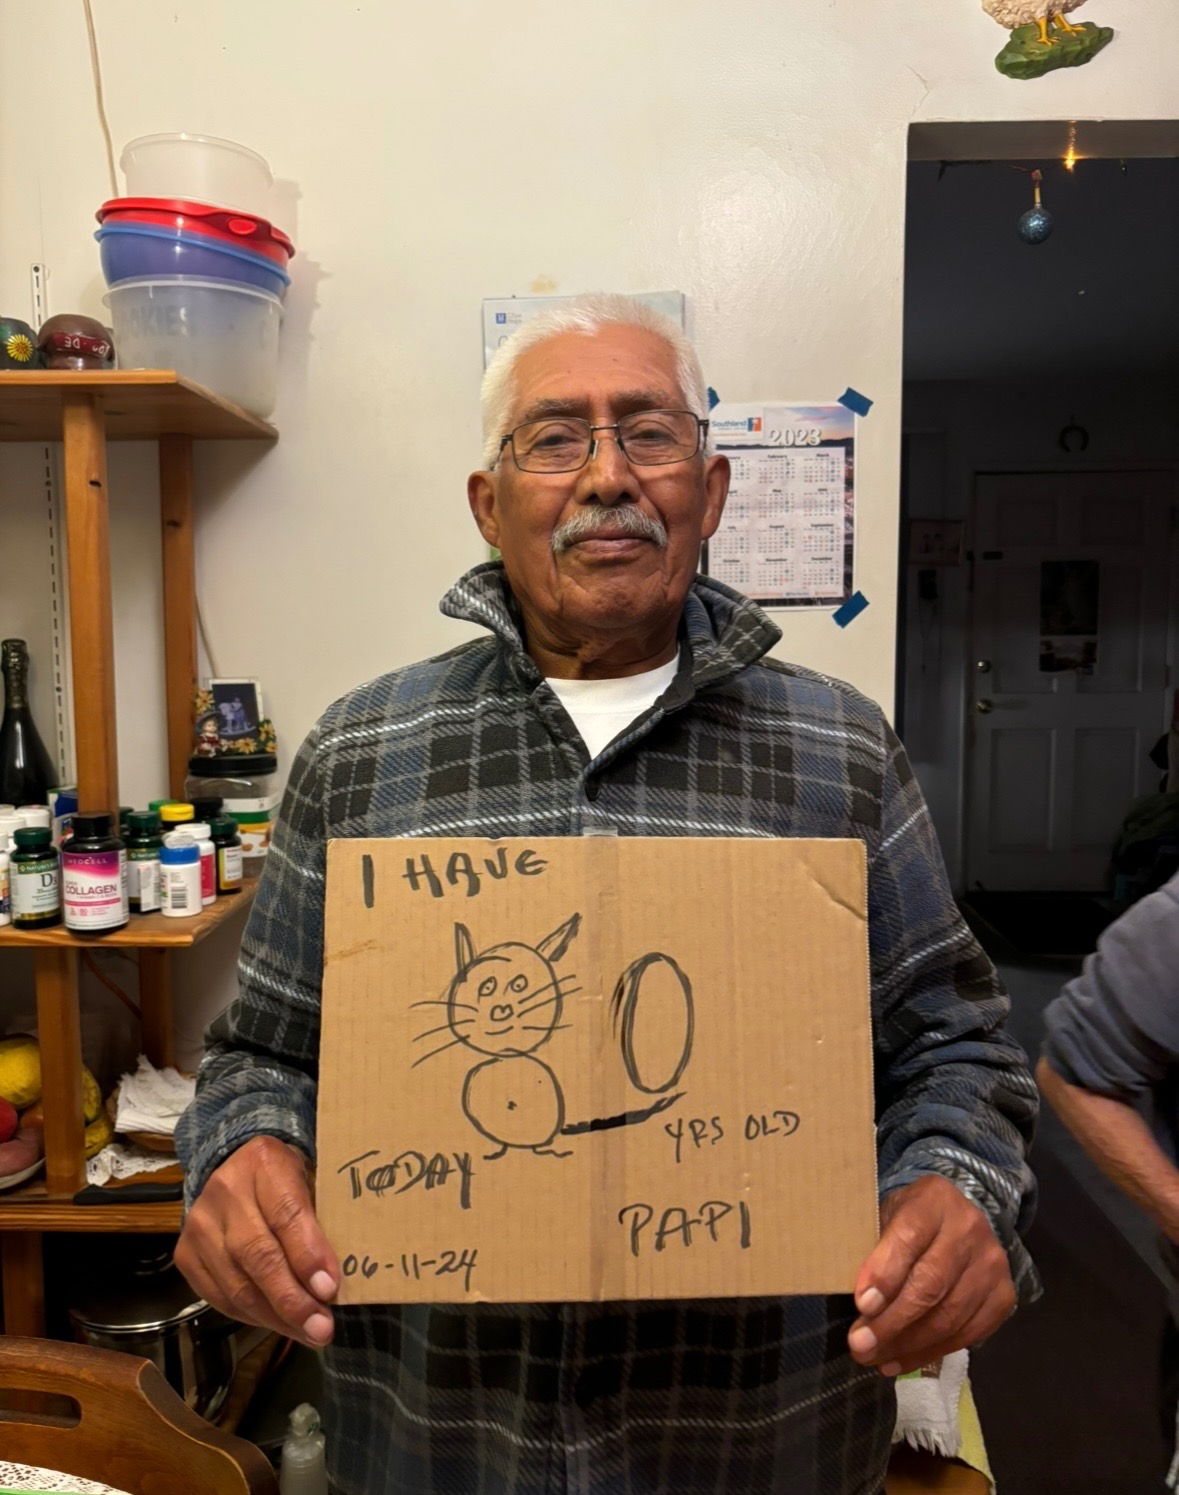 I HAVE
0
YRS OLD
TODAY
PAPI
06-11-24
Southland
2023
OKIES
D3
NEOCELL
SUPER
COLLAGEN